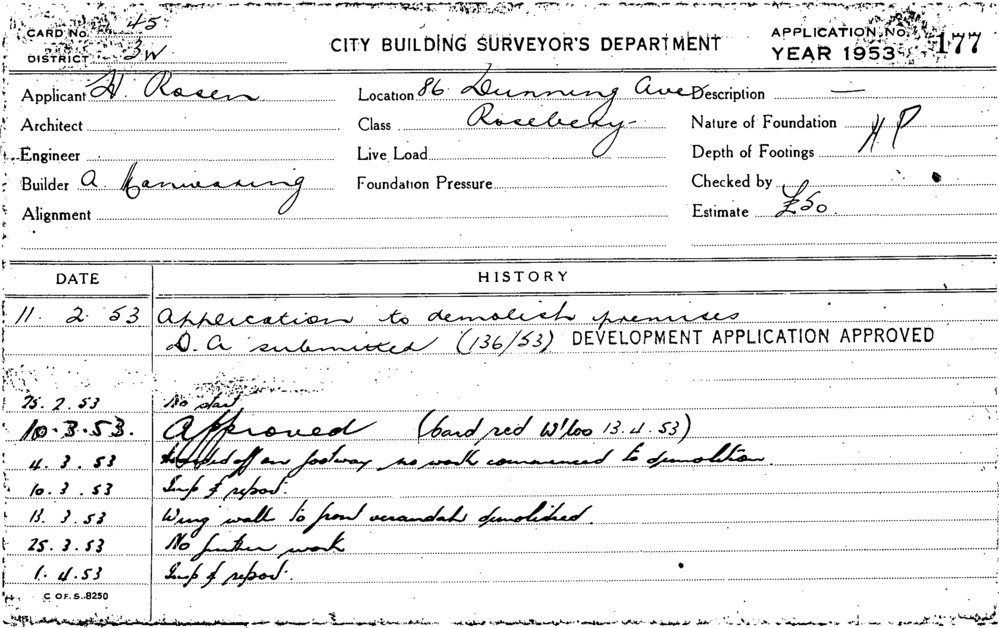 CARD No. 45
DISTRICT 3W
CITY BUILDING SURVEYOR'S DEPARTMENT
APPLICATION No. 177
YEAR 1953
Applicant H. Rosen
Location 86 Dunning Ave
Description —
Architect
Class Rosebery
Nature of Foundation HP
Engineer
Live Load
Depth of Footings
Builder A
Foundation Pressure
Checked by
Alignment
Estimate £50.
DATE
HISTORY
11. 2. 53 Application to demolish premises
D. A submitted (136/53) DEVELOPMENT APPLICATION APPROVED
25. 2. 53 No start
10. 3. 53. Approved (Card red W'loo 13. 4. 53)
4. 3. 53 Hoarded off on footway no work commenced to demolition.
10. 3. 53 Insp & report.
13. 3. 53 Wing wall to front verandah demolished.
25. 3. 53 No further work
1. 4. 53 Insp & report.
C OF S. 8250